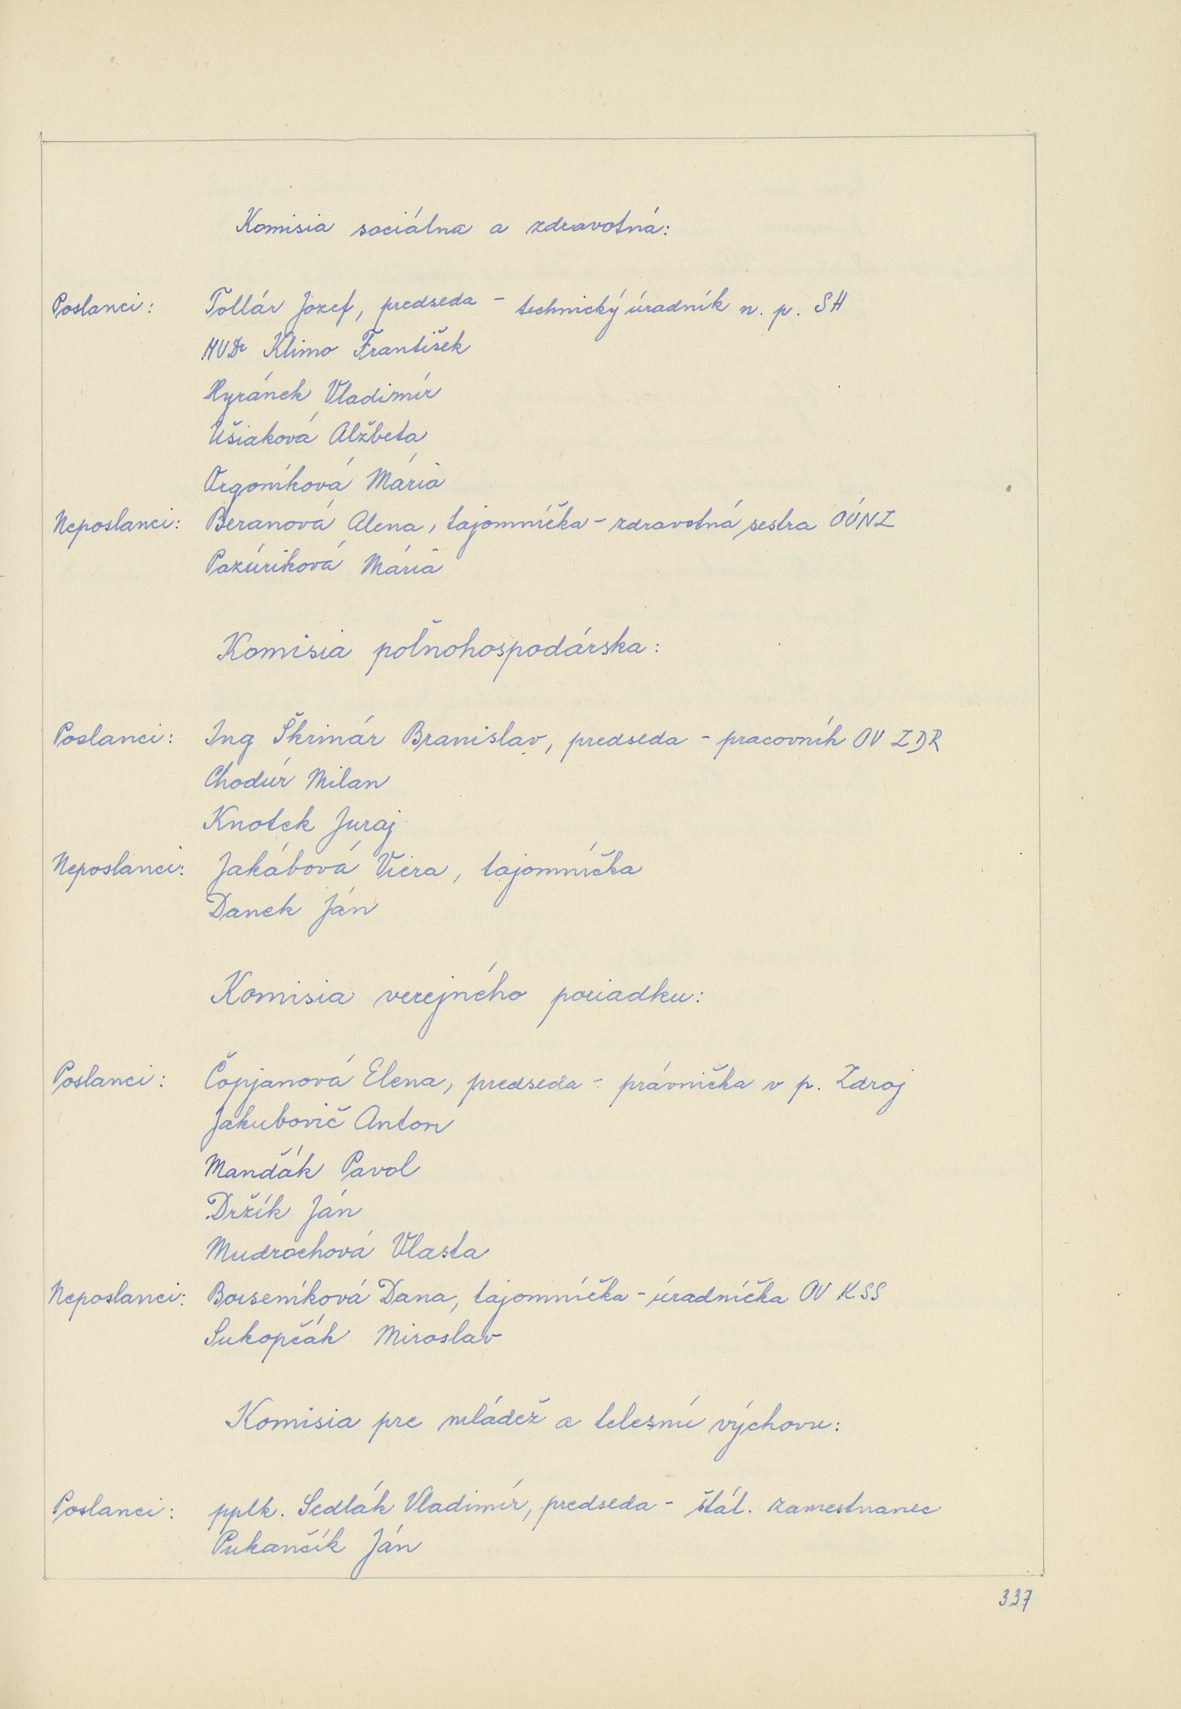 Komisia sociálna a zdravotná:
Poslanci: Tollár Jozef, predseda - technický úradník n. p. SH
MUDr Klimo František
Hyránek Vladimír
Ušiaková Alžbeta
Orgoníková Mária
Neposlanci: Beranová Alena, tajomníčka - zdravotná sestra OÚNZ
Pazúriková Mária
Komisia poľnohospodárska:
Poslanci: Ing Škrinár Branislav, predseda - pracovník OV ZDR
Chodúr Milan
Knotek Juraj
Neposlanci: Jakábová Viera, tajomníčka
Danek Ján
Komisia verejného poriadku:
Poslanci: Čopjanová Elena, predseda - právnička v p. Zdroj
Jakubovič Anton
Mandák Pavol
Držík Ján
Mudrochová Vlasta
Neposlanci: Borseníková Dana, tajomníčka - úradníčka OV KSS
Sukopčák Miroslav
Komisia pre mládež a telesnú výchovu:
Poslanci: pplk. Sedlák Vladimír, predseda - štát. zamestnanec
Pukančík Ján
337